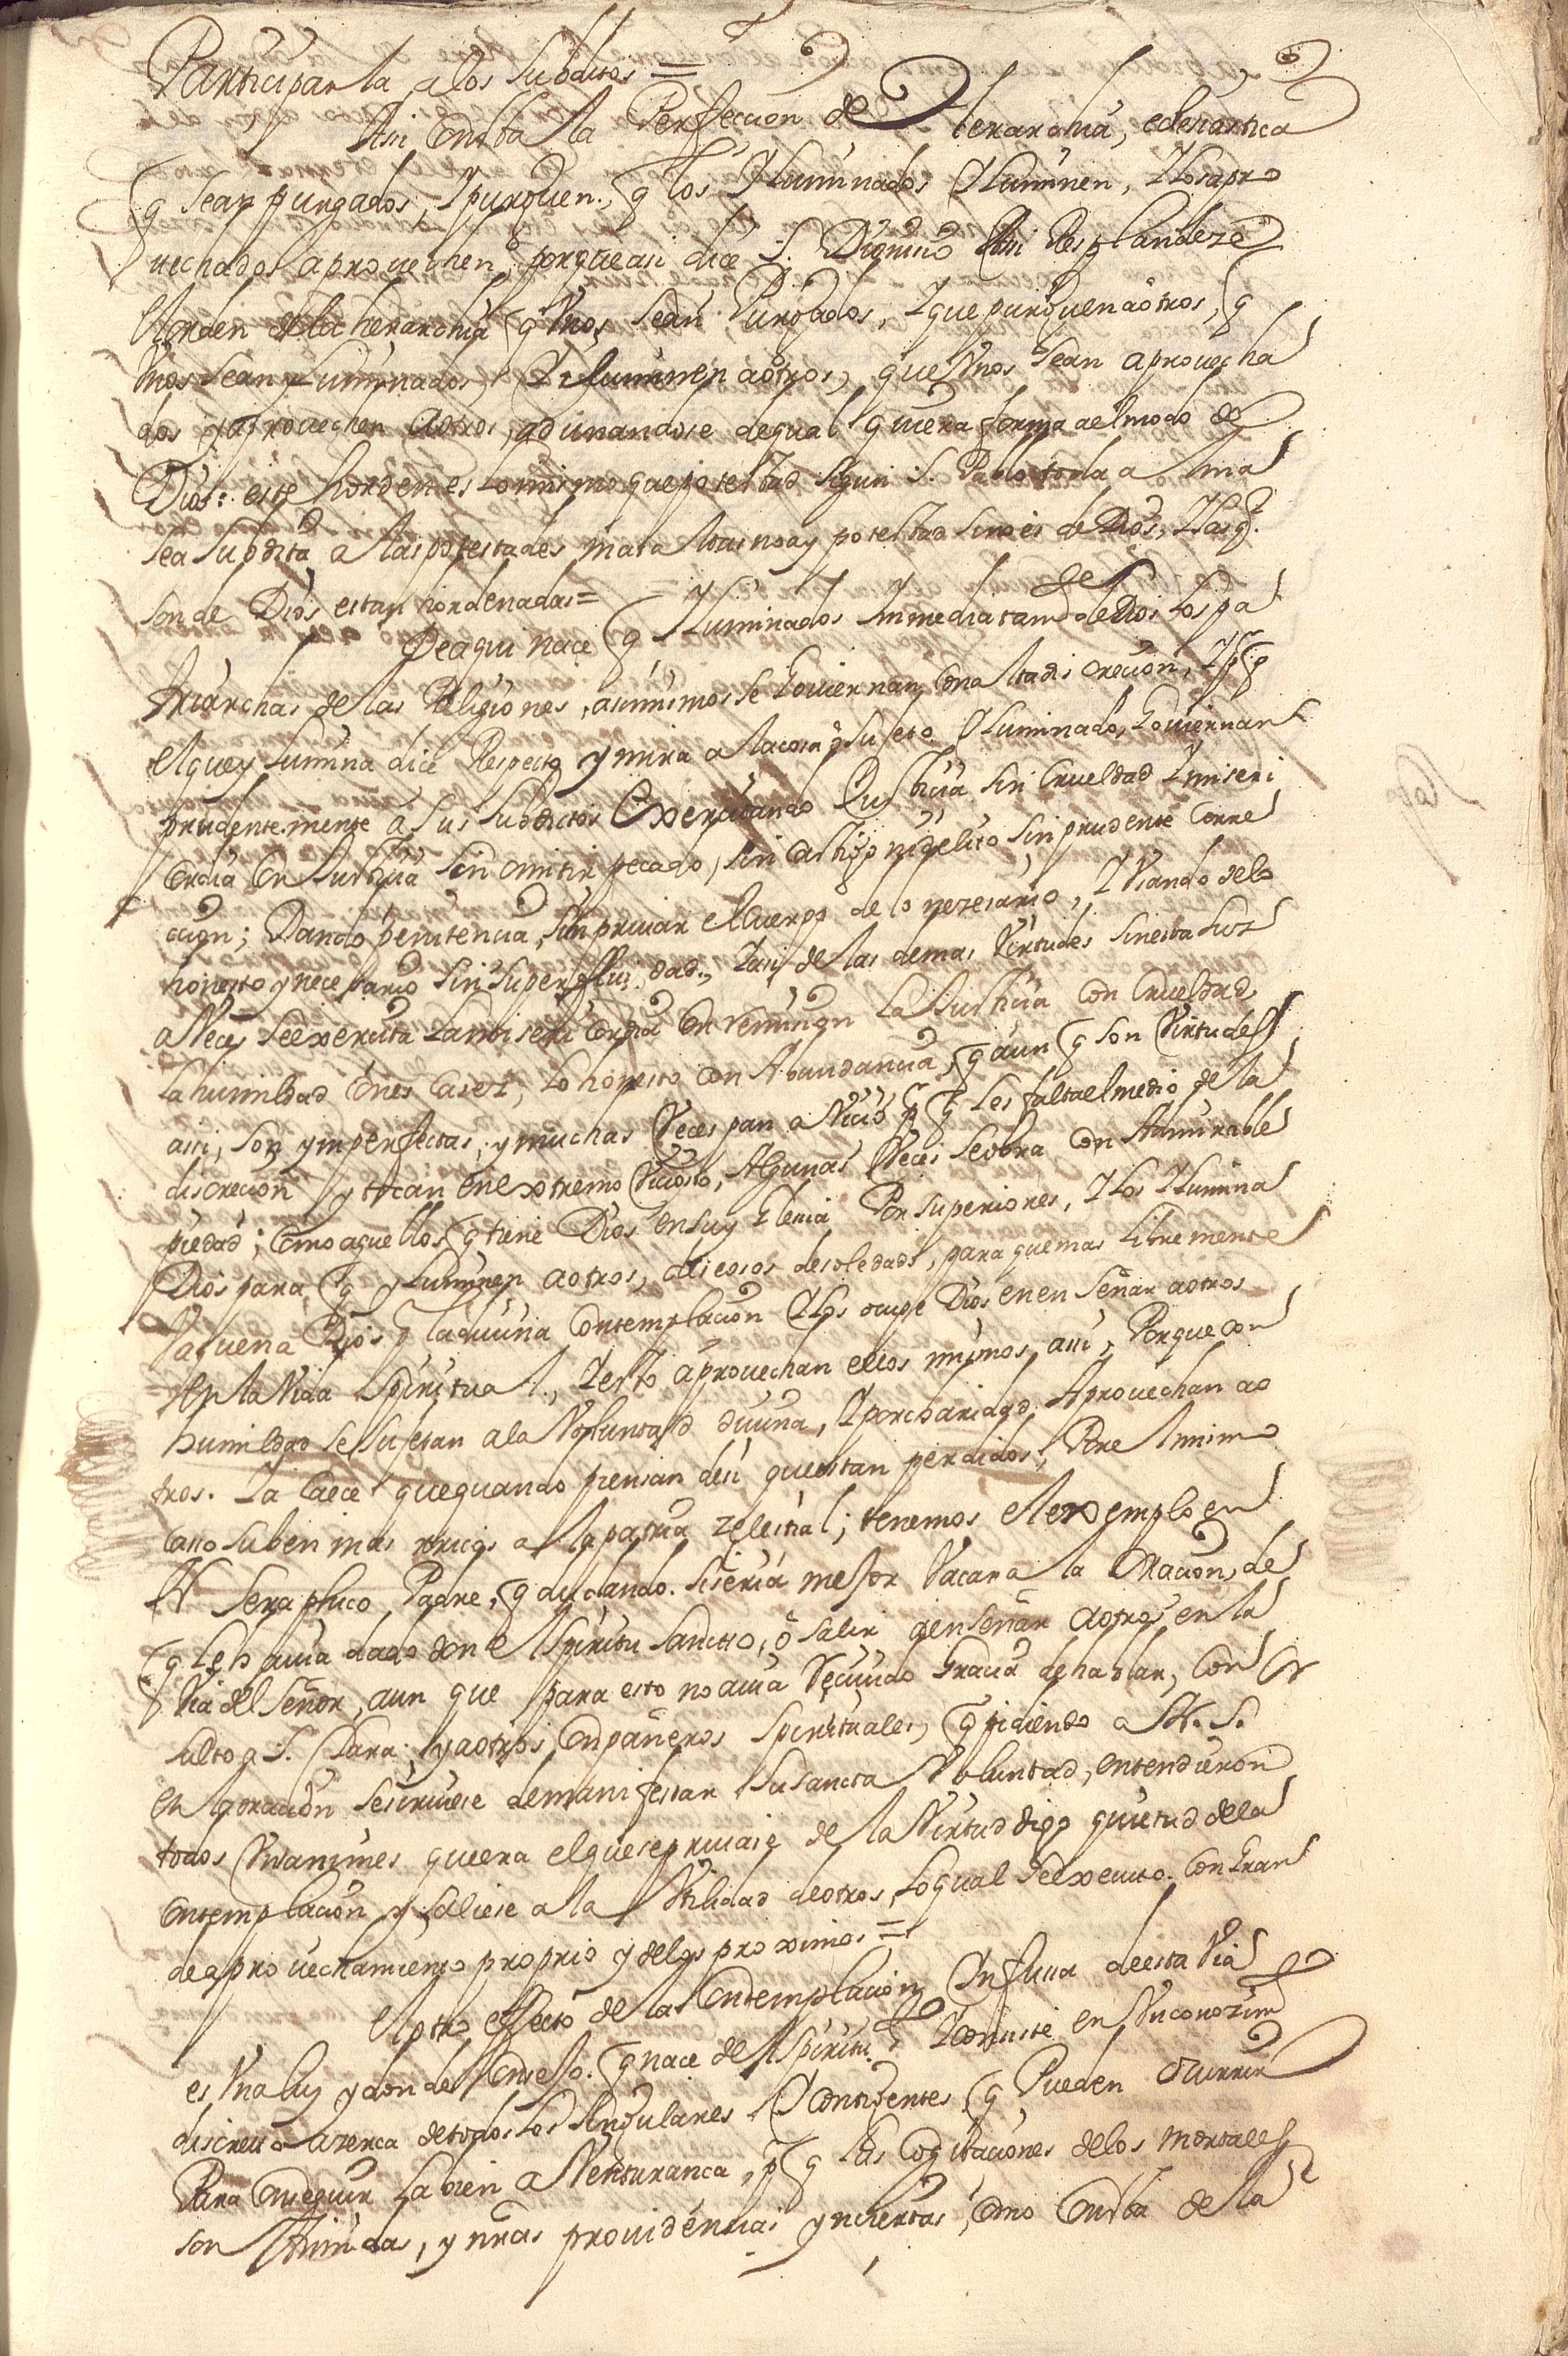 Participarla a los subditos =
Asi consta la Perfeccion de Ierarchia, eclesiastica
q sean purgados, y purguen, q los Illuminados Illuminen, y los apro
uechados aprouechen, porque asi dice S. Dionisio Asi Resplandeze
el orden de la herarchia q Vnos sean Purgados, y que purguen a otros, q
Vnos sean yluminados, y yluminen a otros, que Vnos sean aprouecha
dos y aprouechen a otros, adunandose de qual quiera forma al modo de
Dios: este horden es lo mismo que potestad segun S. Pablo toda alma
sea subdita a las potestades mas altas no ay potestad sino es de Dios, y las q.
son de Dios estan hordenadas =
De aqui nace q Illuminados Inmediatam.te de Dios los pa
triarchas de las Religiones, asimismos se Gouiernan con alta discrecion, y pq
el que ylumina dice Respecto y mira a la cosa o sujeto Illuminado, Gouiernan
prudentemente a sus subditos Exercitando Justicia sin crueldad y miseri
cordia con Justicia sin omitir pecado, sin castigo ni delito sin prudente corre
ccion; Dando penitencia, sin priuar el cuerpo de lo nezesario, y Vsando de lo
honesto y necesario sin superfluidad, y asi de las demas Virtudes sin esta luz
a Veces se exercita la misericordia con remision la Justicia con crueldad
la humildad con escasez, lo honesto con Abundancia, q aun q son Virtudes
assi, son ymperfectas, y muchas Veces pasan a Vicio pq les falta el medio de la
discrecion y tocan en extremo Vicioso, Algunas Veces se obra con Admirable
piedad; como aquellos q tiene Dios en su yglesia Por superiores, y los Ilumina
Dios para q yluminen a otros, deseosos de soledad, para que mas libremente
Vaquen a Dios y la diuina contemplacion y los ocupe Dios en enseñar a otros
en la Vida Espiritual, y esto aprouechan ellos mismos assi, Porque con
humildad se sujetan a la Voluntad diuina, y por charidad Aprouechan a o
tros. Y a caece que quando piensan de si que estan perdidos, Por el mismo
caso suben mas ricos a la patria zelestial; tenemos el exemplo en
N Seraphico Padre, q dudando si seria mejor Vacar a la Oracion, de
q le hauia dado don el Espiritu Sancto, o salir a enseñar a otros en la
Via del Señor, aun que para esto no auia Reciuido Gracia de hablar, con
sulto a S. Clara, y a otros conpañeros Spirituales, q pidiendo a N. S.
en la oracion se siruiese de manifestar su sancta Voluntad, entendieron
todos Vnanimes que era el que se priuase de la Virtud digo quietud de la
contemplacion y saliese a la Vtilidad de otros, lo qual se executo con Gran
de aprouechamiento proprio y de los proximos =
El otro effecto de la contemplacion Infusa de esta Via
es Vna luz y don de consejo q nace del Spiritu S.to y consiste en Vn conozim.to
discreto azerca de todos los singulares y contingentes q Pueden ocurrir
Para conseguir la bien a Venturanca, pq las cogitaciones de los mortales
son timidas, y nrãs prouidencias ynciertas, como consta de la